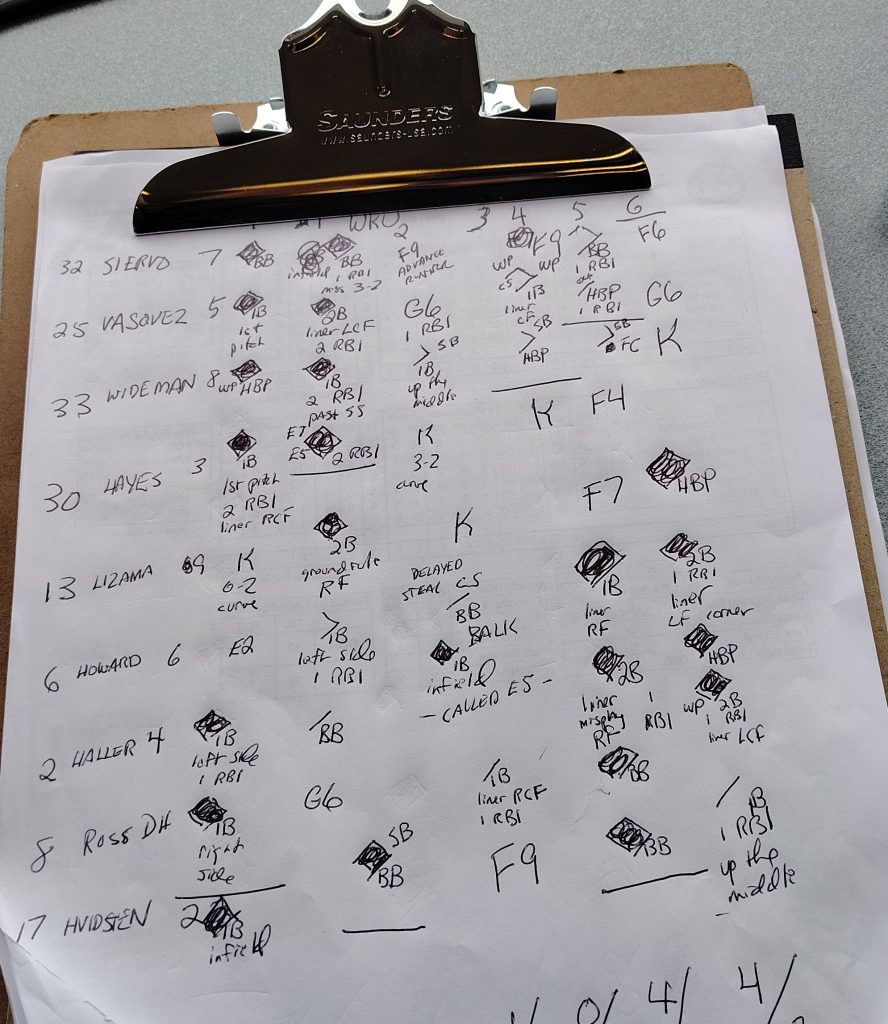 SAUNDERS
www.saunders-usa.com
3 4 5 6
32 SIERVO 7 BB infield BB 1 RBI miss 3-2 F9 ADVANCE RUNNER WP F9 WP BB 1 RBI F6
25 VASQUEZ 5 1B 1st pitch 2B liner LCF 2 RBI G6 1 RBI CS 1B liner CF HBP 1 RBI G6
33 WIDEMAN 8 WP HBP 1B 2 RBI past SS SB 1B up the middle SB HBP SB FC K
30 HAYES 3 1B 1st pitch 2 RBI liner RCF E7 E5 2 RBI K 3-2 curve K F4
13 LIZAMA 9 K 0-2 curve 2B ground rule RF K F7 HBP
6 HOWARD 6 E2 1B left side 1 RBI DELAYED STEAL CS BB BALK 1B liner RF 2B 1 RBI liner LF corner
2 HALLER 4 1B left side 1 RBI BB 1B infield - CALLED E5 - 2B liner misplay RF 1 RBI HBP
8 ROSS DH 1B right side G6 1B liner RCF 1 RBI BB WP 2B 1 RBI liner LCF
17 HVIDSTEN 2 1B infield SB BB F9 BB 1B 1 RBI up the middle
0/ 4/ 4/